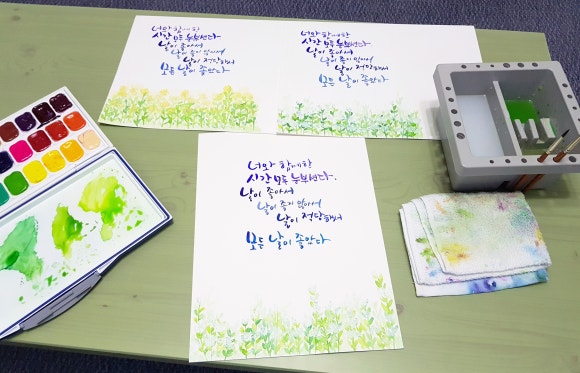 너와 함께한
시간 모두 눈부셨다
날이 좋아서
날이 좋지 않아서
날이 적당해서
모든 날이 좋았다
너와 함께한
시간 모두 눈부셨다
날이 좋아서
날이 좋지 않아서
날이 적당해서
모든 날이 좋았다
너와 함께한
시간 모두 눈부셨다.
날이 좋아서
날이 좋지 않아서
날이 적당해서
모든 날이 좋았다